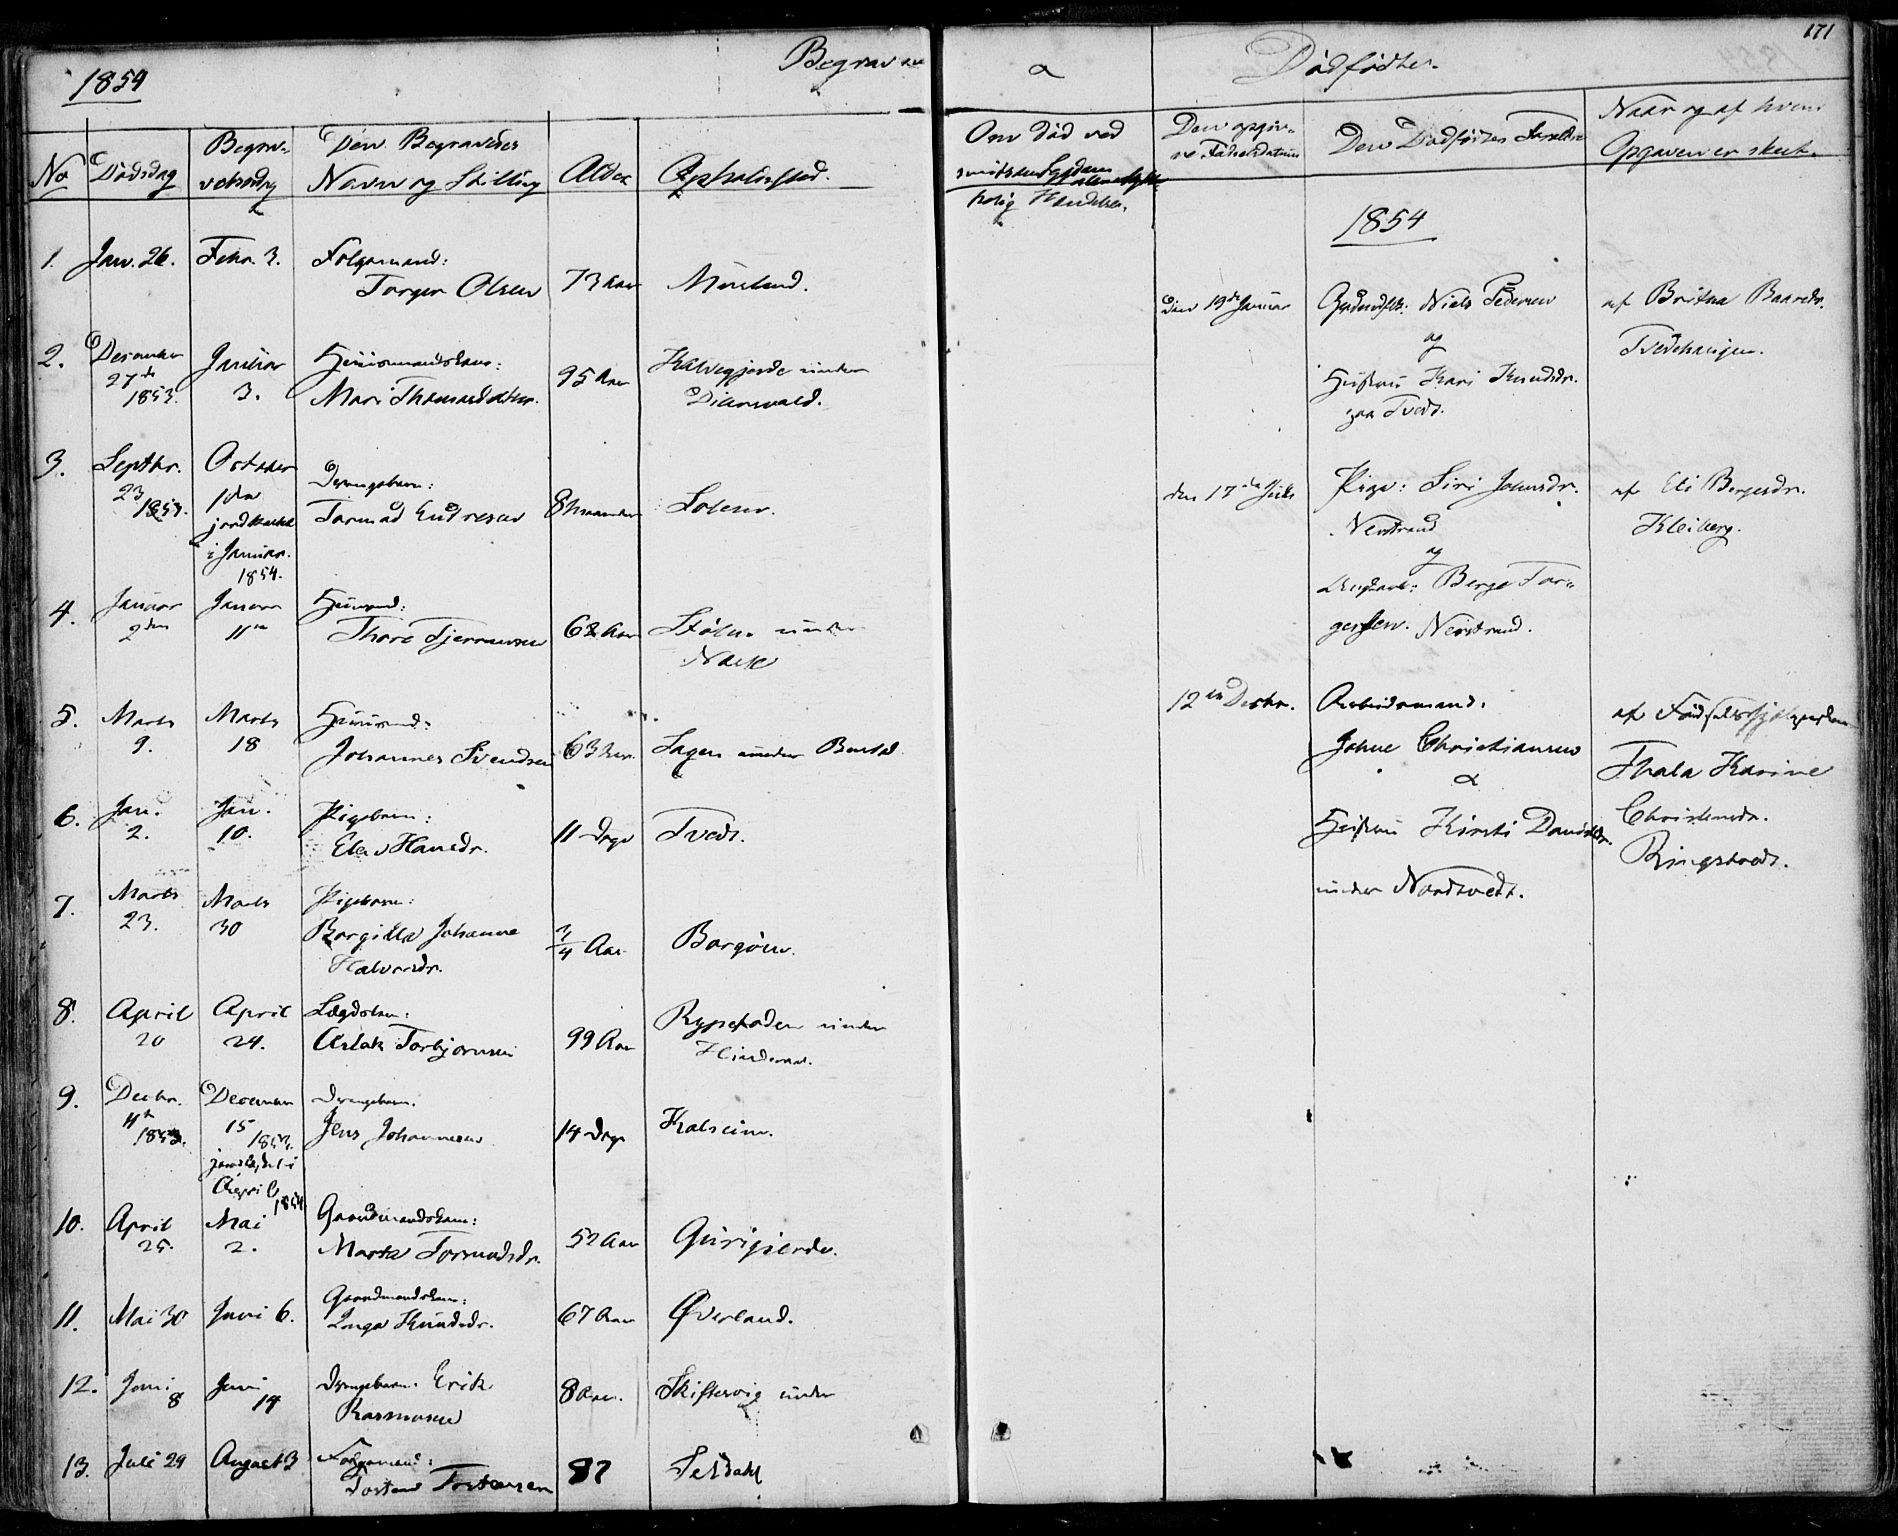 171
1854
Begravne
Dødfødte.
No
Dødsdag
Begrav-
velsesdag
Den Begravedes
Navn og Stilling
Alder
Opholdssted.
Om død ved
Den opgiv-
ne Fødselsdatum
Den Dødfødtes Forældre
Naar og af hvem
Opgaven er skeet.
1. Jan. 26. Febr. 3. Folgemand:
Torger Olsen 73 Aar
2. December 27de 1853. Januar 3. Huusmandskone:
Mari Thomasdatter. 95 Aar Kalvegjerde under
3. Septbr. 23 1853. October 1ste jordkastet i Januar. 1854. Drengebarn:
Tormod Endresen 8 Maaneder
4. Januar 2den Januar 11te Huusmand:
Thore 62 Aar Stølen under
5. Marts 9. Marts 18 Huusmand:
Johannes Svendsen 63 Aar Hagen under
6. Jan. 2. Jan. 10. Pigebarn:
Hansdr. 11 Dage Tvedt.
7. Marts 23. Marts 30 Pigebarn:
Borgilla Johanne
Halvorsdr. 3/4 Aar Borgøen.
8. April 20 April 24. Lægdslem:
Aslak Torbjørnsen 99 Aar under
Hinderaa.
9. Decbr. 11te 1853. December 15 1853. jordkastet i April 1854 Drengebarn.
Jens Johannesen 14 Dage
10. April 25. Mai 2. Gaardmandskone:
Marta Tormodsdr. 52 Aar
11. Mai 30 Juni 6. Gaardmandskone:
Inga Knudsdr. 67 Aar Øverland.
12. Juni 8 Juni 14 Drengebarn. Erik
Rasmusen 8 Aar. under
13. Juli 29 August 3 Folgemand:
Torsten Torstensen 87
1854
Den 19de Januar Gaardmd: Niels Pedersen
og
Hustru Kari Knudsdr.
paa Tvedt.
af Britha Baardsdr.
Tvedehaugen.
den 17de Juli Pige: Siri Johnsdr.
Nerstrand
og
Berge Tor-
gersen. Nerstrand.
af Eli Bergesdr.
Kleiberg.
12te Decbr. Arbeidsmand.
Johne Christiansen
Hustru Kirsti Davidsdr.
under Nordtvedt.
af Fødselshjelpersken
Thala Karine
Christensdr.
Ringstvedt.